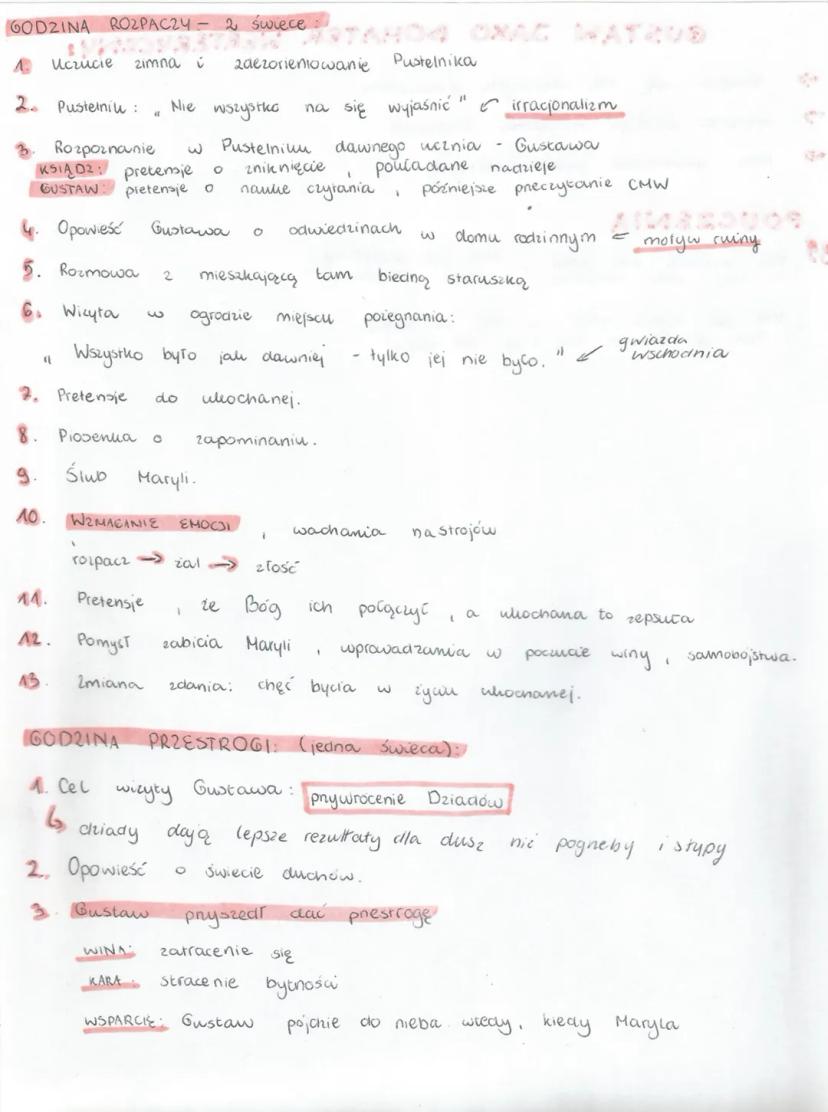 GODZINA ROZPACZY - 2 świece:
1. Uczucie zimna i zdezorientowanie Pustelnika
2. Pustelnik: „Nie wszystko na się wyjaśnić" irracjonalizm
3. Rozpoznanie w Pustelniku dawnego ucznia - Gustawa
KSIĄDZ: pretensje o zniknięcie, pokładane nadzieje
GUSTAW: pretensje o naukę czytania, późniejsze przeczytanie CMW
4. Opowieść Gustawa o odwiedzinach w domu rodzinnym = motyw ruiny
5. Rozmowa z mieszkającą tam biedną staruszką
6. Wizyta w ogrodzie miejscu pożegnania:
„Wszystko było jak dawniej - tylko jej nie było." gwiazda wschodnia
7. Pretensje do ukochanej.
8. Piosenka o zapominaniu.
9. Ślub Maryli.
10. WZMAGANIE EMOCJI, wachania nastrojów
rozpacz → żal → złość
11. Pretensje, że Bóg ich połączył, a ukochana to zepsuła
12. Pomysł zabicia Maryli, wprowadzania w poczucie winy, samobójstwa.
13. Zmiana zdania: chęć bycia w życiu ukochanej.
GODZINA PRZESTROGI: (jedna świeca):
1. Cel wizyty Gustawa: przywrócenie Dziadów
↳ dziady dają lepsze rezultaty dla dusz niż pogrzeby i stypy
2. Opowieść o świecie duchów.
3. Gustaw przyszedł dać przestrogę
WINA: zatracenie się
KARA: stracenie bytności
WSPARCIE: Gustaw pójdzie do nieba wtedy, kiedy Maryla